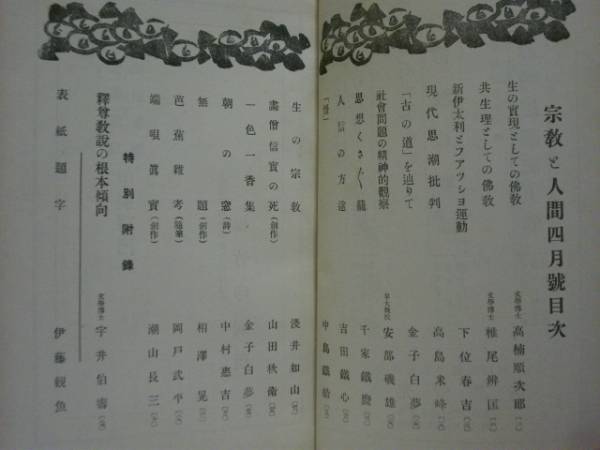 宗教と人間四月號目次
生の實現としての佛敎 文學博士 高楠順次郎
共生理としての佛敎 文學博士 椎尾辨匡
新伊太利とフアツシヨ運動 下位春吉
現代思潮批判 高島米峰
「古の道」を辿りて 金子白夢
社會問題の精神的觀察 早大敎授 安部磯雄
思想くさ〴〵籠 千家鐵麿
人信の方途 吉田鐵心
中島
生の宗敎 淺井如山
畵僧信實の死(創作) 山田秋衞
一色一香集 金子白夢
朝の窓(詩) 中村惠吉
無題(創作) 相澤晃
芭蕉雜考(隨筆) 岡戸武平
端唄眞實(創作) 潮山長三
特別附錄
釋尊敎說の根本傾向 文學博士 宇井伯壽
表紙題字 伊藤觀魚